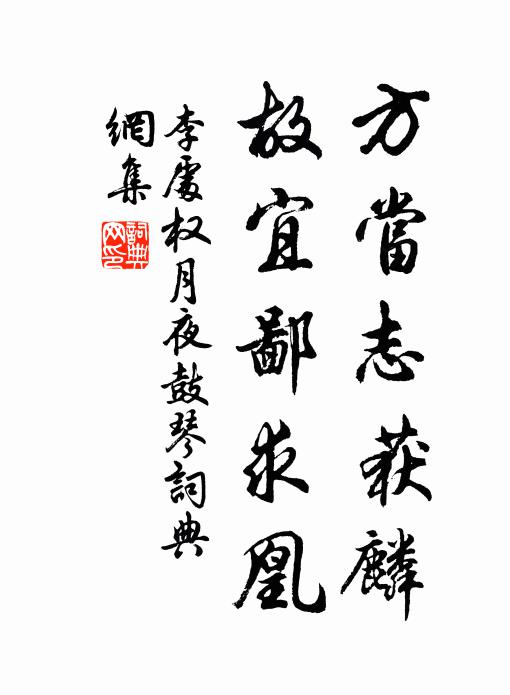 方當志获麟
故宜鄙求凰
李處权月夜鼓琴詞典
網集
詞典
网印